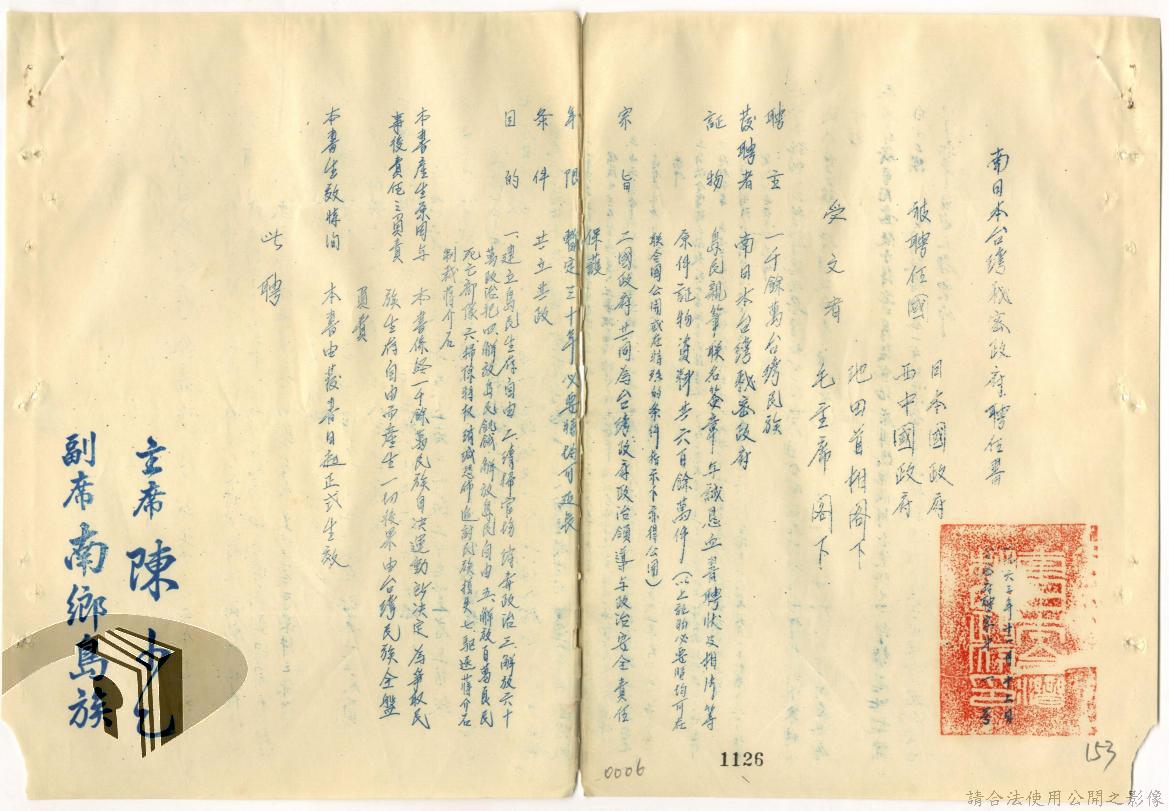 南日本台灣秘密政府聘任書
一九六三年十一月十二日
被聘任國
日本國政府
西中國政府
受文者
池田首相閣下
毛主席 閣下
聘主 一千餘萬台灣民族
發聘者 南日本台灣秘密政府
証物 島民親筆聯名簽章年誠懇血書聘狀及相片等
原件証物資料共六百餘萬件(以上証物必要時均可在
聯合國公開或在特殊的条件指示下亦得公開)
宗旨 二國政府共同為台灣政府政治領導与政治安全責任
保護
年限 暫定三十年必要時均可延長
条件 共立共政
目的 一建立島民生存自由二清掃官僚 貪污政治三解放六十
萬政治犯四解放島民飢餓 解放島民自由五解放百萬良民
死亡 六掃除特权 消滅恐怖追討民族損失七驅逐蔣介石
制裁蔣介石
本書產生原因与
事後責任之負責
本書係經一千餘萬民族自决運動所决定為爭取民
族生存自由而產生一切後果由台灣民族全盤
負責
本書生效時间 本書由發書日起正式生效
此聘
主席 陳
副席 南鄉島族
1126
0006
153
請合法使用公開之影像